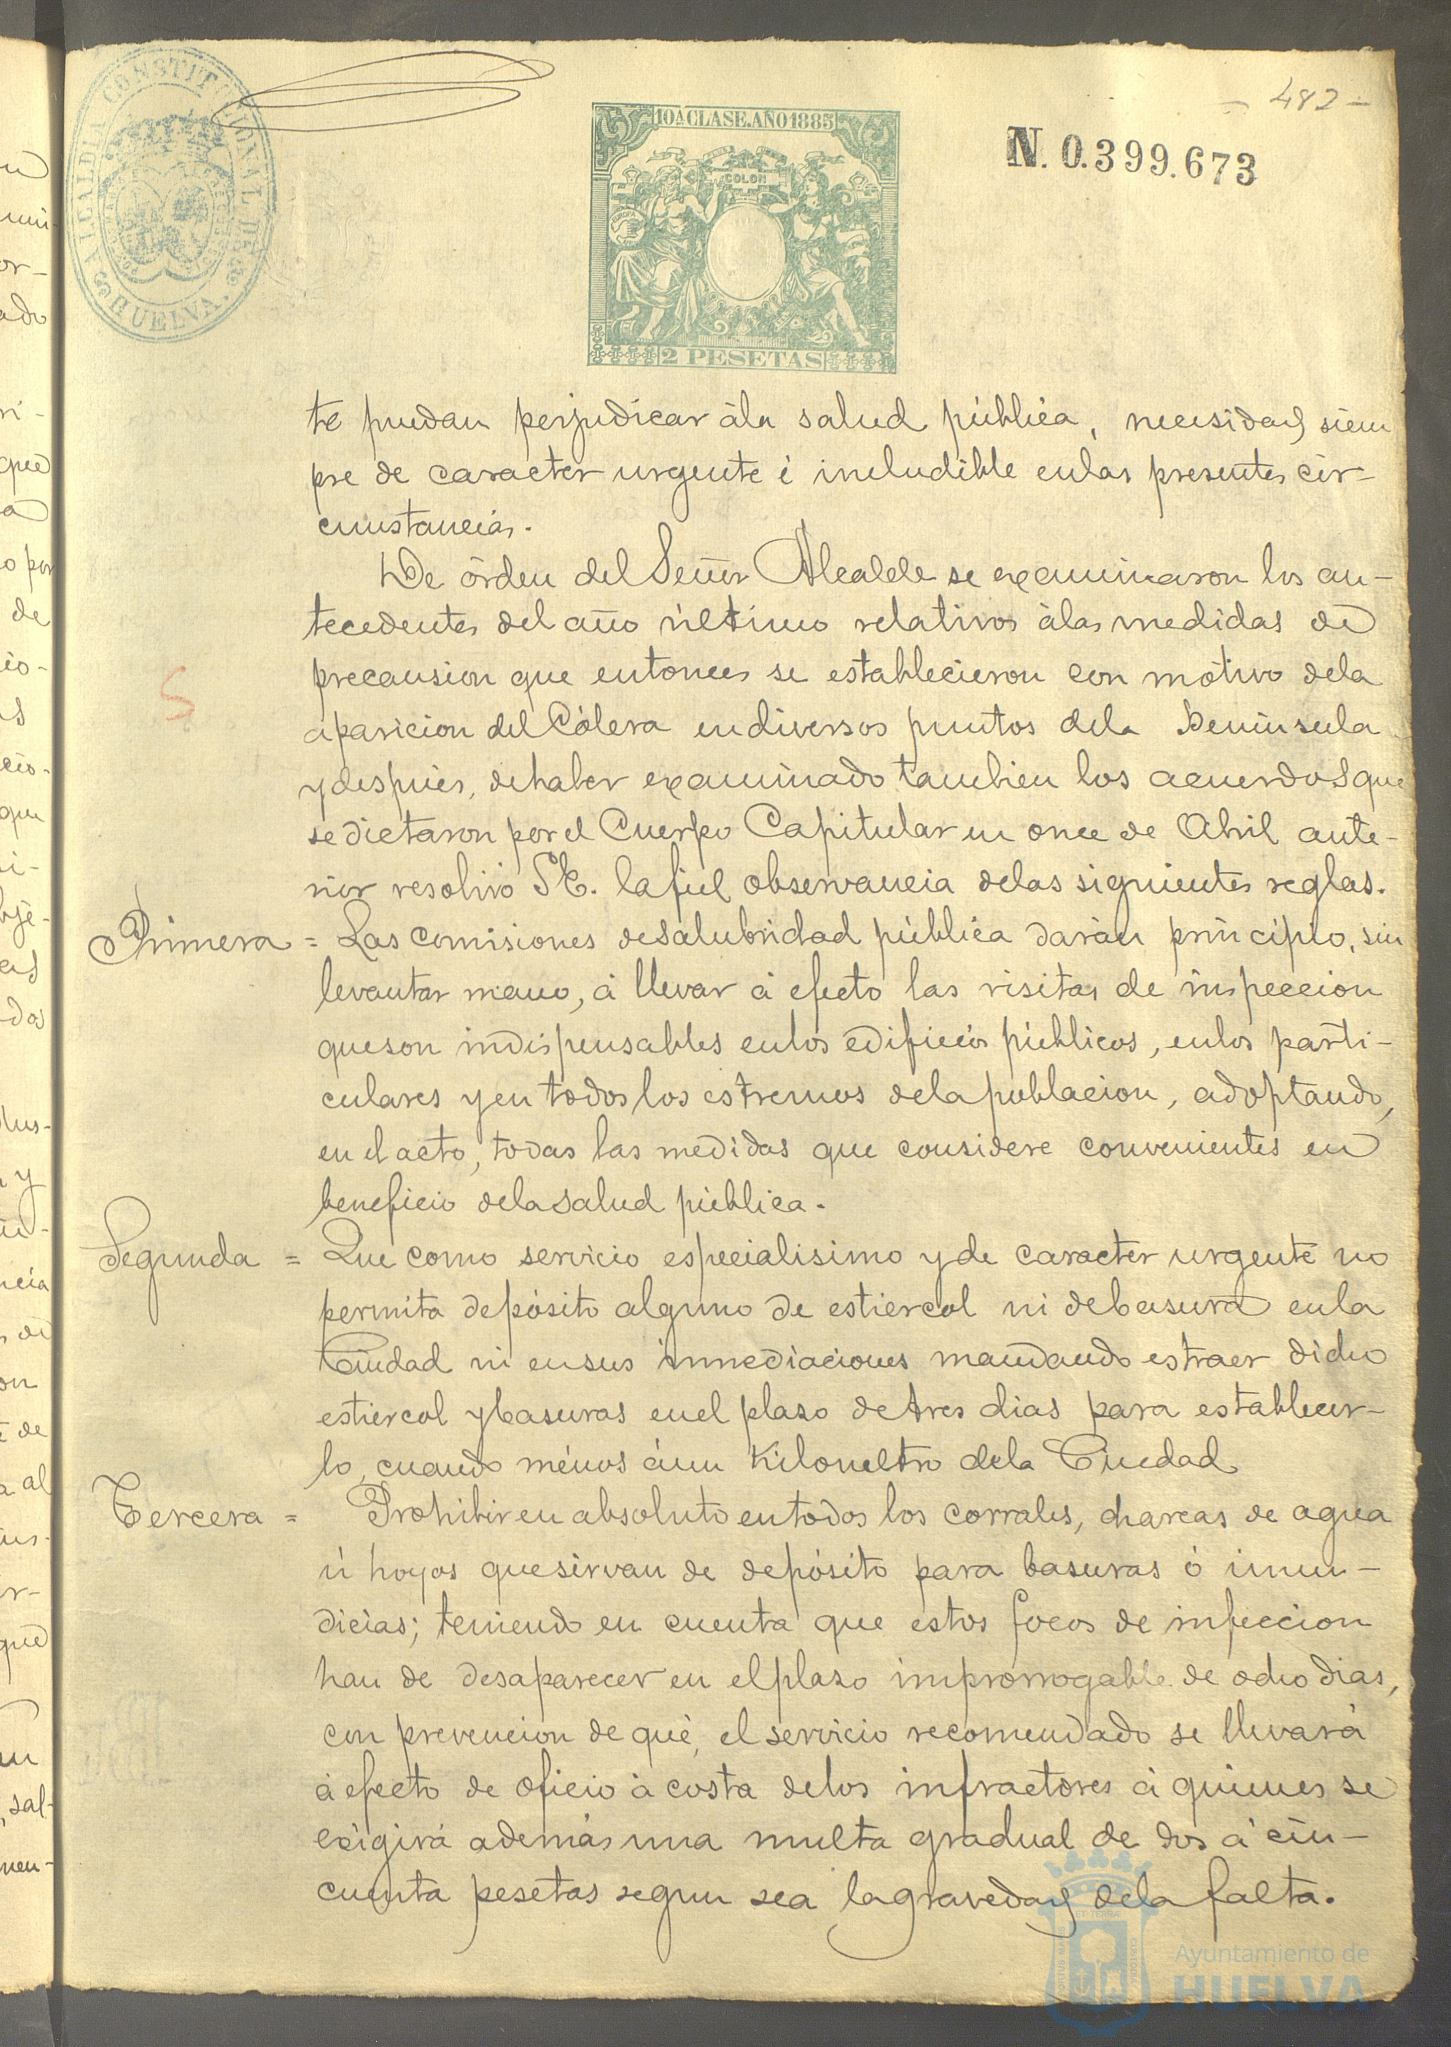 - 482 -
ALCALDIA CONSTITUCIONAL DE HUELVA.
10.A CLASE.AÑO 1885
COLON
2 PESETAS
N. 0.399.673
te puedan perjudicar àla salud pública, necesidad siem
pre de caracter urgente é ineludible enlas presentes cir-
cunstancias.
De órden del Señor Alcalde se examinaron los an-
tecedentes del año último relativos àlas medidas de
precausion que entonces se establecieron con motivo dela
aparicion del Cólera en diversos puntos dela Península
y despues, dehaber examinado tambien los acuerdos que
se dictaron por el Cuerpo Capitular en once de Abril ante-
rior resolvió S.E. la fiel observancia delas siguientes reglas.
Primera = Las comisiones desalubridad pública darán principio, sin
levantar mano, á llevar á efecto las visitas de inspeccion
queson indispensables enlos edificios públicos, enlos parti-
culares y en todos los estremos dela poblacion, adoptando,
en el acto, todas las medidas que considere convenientes en
beneficio dela salud pública.
Segunda = Que como servicio especialisimo y de caracter urgente no
permita depósito alguno de estiercol ni debasura enla
Ciudad ni ensus inmediaciones mandando estraer dicho
estiercol y basuras enel plaso detres dias para establecer-
lo, cuando ménos áun Kilometro dela Ciudad
Tercera = Prohibir en absoluto entodos los corrales, charcas de agua
ú hoyos quesirvan de depósito para basuras ó inmun-
dicias; teniendo en cuenta que estos focos de infeccion
han de desaparecer en el plazo improrrogable de ocho dias,
con prevencion de qué, el servicio recomendado se llevará
á efecto de oficio à costa delos infractores á quienes se
exigirá además una multa gradual de dos á cin-
cuenta pesetas segun sea la gravedad dela falta.
Ayuntamiento de
HUELVA